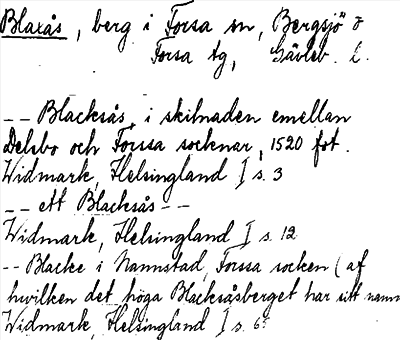 Blaxås, berg i Forsa sn, Bergsjö o
Forsa tg, Gävleb. l.
-- Blacksås, i skilnaden emellan
Delsbo och Forssa socknar, 1520 fot.
Widmark, Helsingland I s. 3
-- ett Blacksås --
Widmark, Helsingland I s. 12
-- Blacke i Nannstad, Forssa socken (af
hwilken det höga Blacksåsberget har sitt namn
Widmark, Helsingland I s. 6